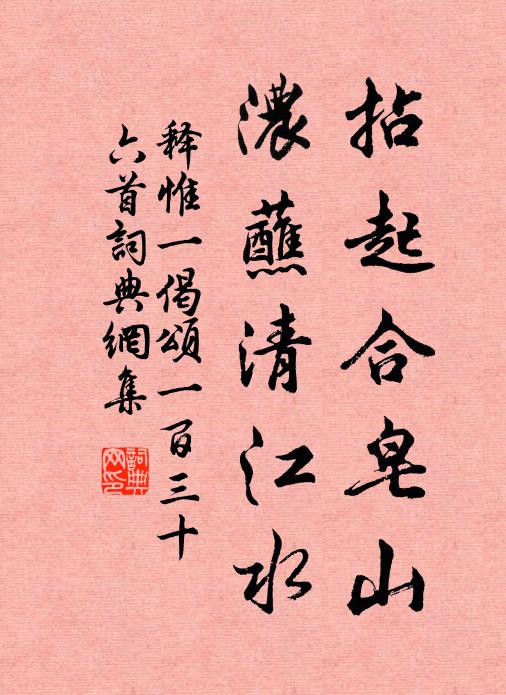 拈起合皂山
濃蘸清江水
释惟一偈頌一百三十
六首詞典網集
詞典
网印